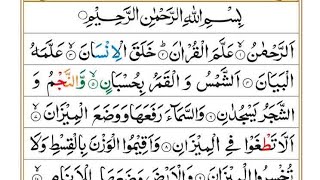 بِسْمِ اللهِ الرَّحْمٰنِ الرَّحِيْمِ
اَلرَّحْمٰنُ ۙ﴿۱﴾ عَلَّمَ الْقُرْاٰنَ ؕ﴿۲﴾ خَلَقَ الْاِنْسَانَ ۙ﴿۳﴾ عَلَّمَهُ
الْبَيَانَ ﴿۴﴾ اَلشَّمْسُ وَ الْقَمَرُ بِحُسْبَانٍ ۪﴿۵﴾ وَّالنَّجْمُ وَ
الشَّجَرُ يَسْجُدٰنِ ﴿۶﴾ وَالسَّمَآءَ رَفَعَهَا وَوَضَعَ الْمِيْزَانَ ۙ﴿۷﴾
اَلَّا تَطْغَوْا فِي الْمِيْزَانِ ﴿۸﴾ وَاَقِيْمُوا الْوَزْنَ بِالْقِسْطِ وَلَا
تُخْسِرُوا الْمِيْزَانَ ﴿۹﴾ وَالْاَرْضَ وَضَعَهَا لِلْاَنَامِ